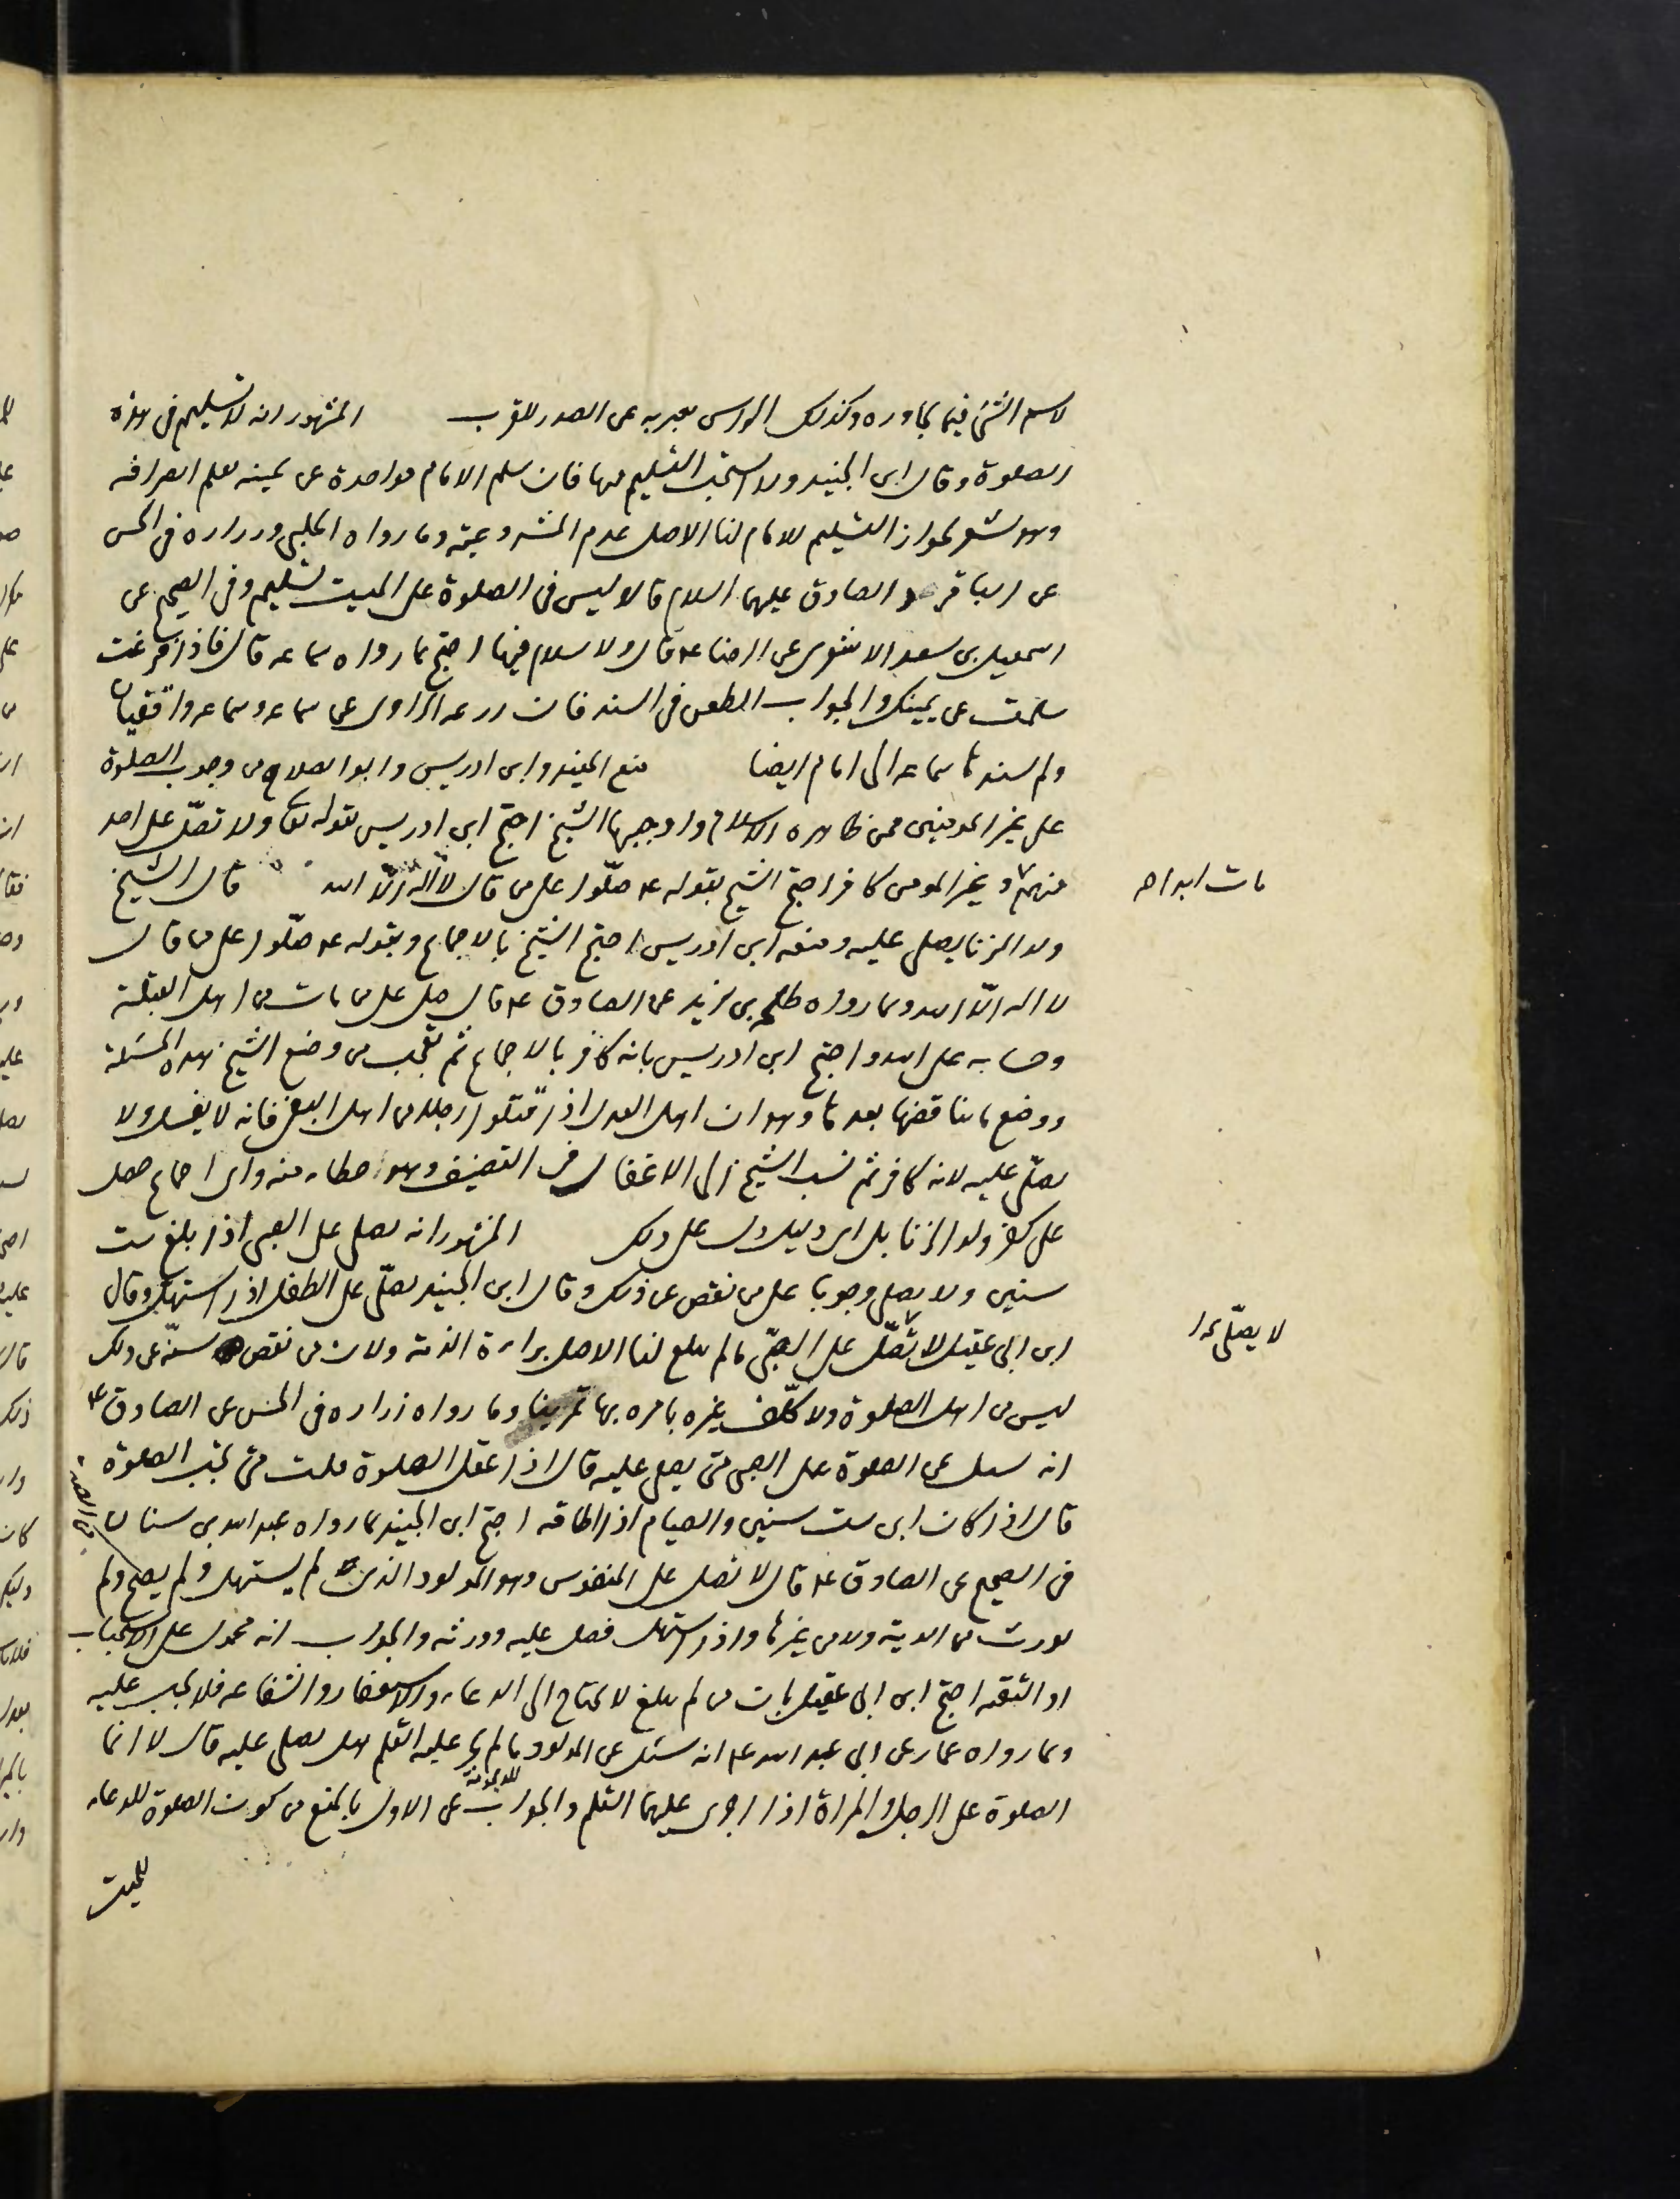 لاسم الشئ فيما يجاوره وكذلك الراس يعبر به عن الصدر للقرب المشهور انه لا تسليم فى هذه
الصلوة وقال ابن الجنيد ولا استحب التسليم فيها فان سلم الامام فواحدة عن يمينه لعلم انصرافه
وهو يشعر بجواز التسليم للامام لنا الاصل عدم المشروعية وما رواه الحلبى وزراره فى الحسن
عن الباقر والصادق عليهما السلام قالا ليس فى الصلوة على الميت تسليم وفى الصحيح عن
اسمعيل بن سعد الاشعرى عن الرضا ع قال ولا سلام فيها احتج بما رواه سماعه قال فاذا فرغت
سلمت عن يمينك والجواب الطعن فى السند فان زرعه الراوى عن سماعه وسماعه واقفيان
ولم يسندها سماعه الى امام ايضا منع المفيد وابن ادريس وابو الصلاح من وجوب الصلوة
على غير المومنين ممن ظاهره الاسلام واوجبها الشيخ احتج ابن ادريس بقوله تعا ولا تصلّ على احد
منهم وغير المومن كافر احتج الشيخ بقوله ع صلّوا على من قال لا اله الّا الله قال الشيخ
مات ابدا صح
ولد الزنا يصلى عليه ومنعه ابن ادريس احتج الشيخ بالاجماع وبقوله ع صلّوا على من قال
لا اله الّا الله وبما رواه طلحه بن زيد عن الصادق ع قال صل على من مات من اهل القبلة
وحسابه على الله واحتج ابن ادريس بانه كافر بالاجماع ثم تعجب من وضع الشيخ هذه المسئلة
ووضع ما يناقضها بعدها وهو ان اهل العدل اذا قتلوا رجلا من اهل البغى فانه لا يغسل ولا
يصلّى عليه لانه كافر ثم نسب الشيخ الى الاغفال فى التصنيف وهو خطاء منه واى اجماع حصل
على كفر ولد الزنا بل اى دليل دل على ذلك المشهور انه يصلى على الصبى اذا بلغ ست
سنين ولا يصلى وجوبا على من نقص عن ذلك وقال ابن الجنيد يصلّى على الطفل اذا استهل وقال
ابن ابى عقيل لا تصلّ على الصبّى ما لم يبلغ لنا الاصل براءة الذمة ولان من نقص سنّه عن ذلك
لا يصلّى
ليس من اهل الصلوة ولا كلّف غيره بامره بها تمرينا وما رواه زراره فى الحسن عن الصادق ع
انه سئل عن الصلوة على الصبى متى يصلى عليه قال اذا عقل الصلوة قلت متى تجب الصلوة
قال اذا كان ابن ست سنين والصيام اذا اطاقه احتج ابن الجنيد بما رواه عبد الله بن سنان
فى الصحيح عن الصادق ع قال لا تصل على المنفوس وهو المولود الذى لم يستهل ولم يصح ولم
يورث من الدية ولا من غيرها واذا استهل فصل عليه وورثه والجواب انه محمول على الاستحباب
او التقيه احتج ابن ابى عقيل بان من لم يبلغ لا يحتاج الى الدعاء والاستغفار والشفاعه فلا يجب عليه
وبما رواه عمار عن ابى عبد الله ع انه سئل عن المولود ما لم يجر عليه القلم هل يصلى عليه قال لا انما
الصلوة على الرجل والمراة اذا اجرى عليهما القلم والجواب عن الاول بالمنع من كون الصلوة للدعاء
للميت